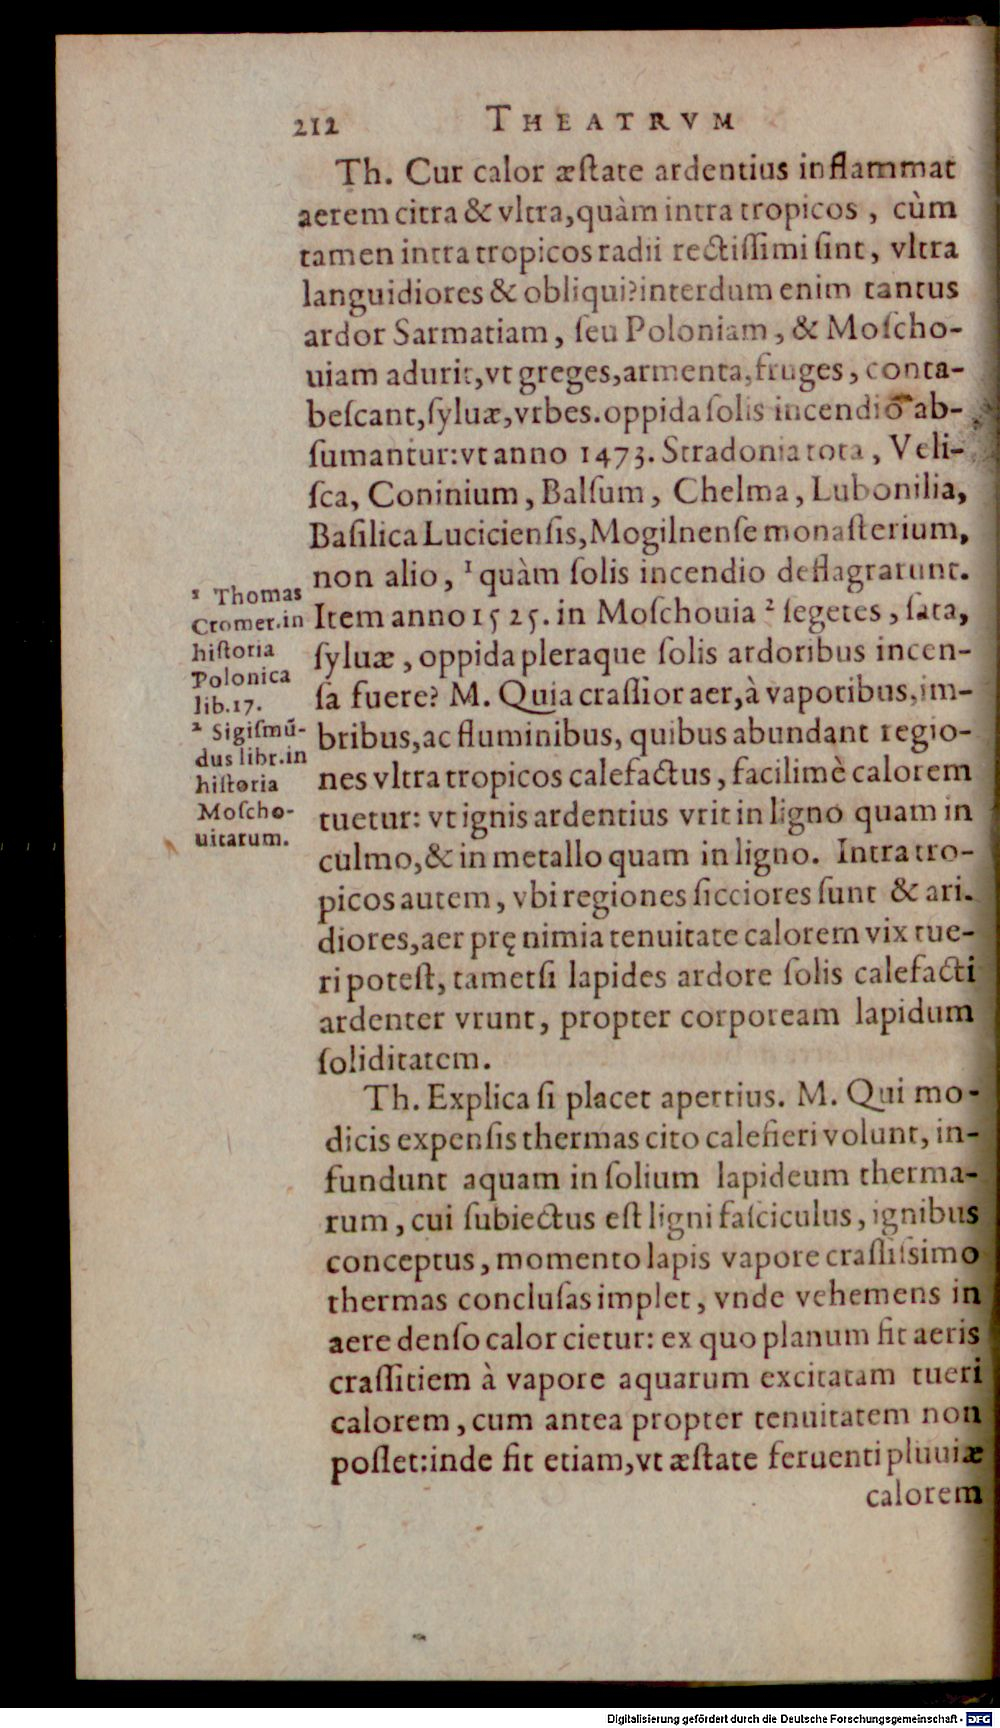 212 THEATRVM
Th. Cur calor æſtate ardentius inflammat
aerem citra & vltra, quàm intra tropicos, cùm
tamen intra tropicos radii rectiſſimi ſint, vltra
languidiores & obliqui? interdum enim tantus
ardor Sarmatiam, ſeu Poloniam, & Moſcho-
uiam adurit, vt greges, armenta, fruges, conta-
beſcant, ſyluæ, vrbes. oppida ſolis incendio ab-
ſumantur: vt anno 1473. Stradonia tota, Veli-
ſca, Coninium, Balſum, Chelma, Lubonilia,
Baſilica Lucicienſis, Mogilnenſe monaſterium,
non alio, ¹ quàm ſolis incendio deflagrarunt.
Item anno 1525. in Moſchouia ² ſegetes, ſata,
ſyluæ, oppida pleraque ſolis ardoribus incen-
ſa fuere? M. Quia craſſior aer, à vaporibus, im-
bribus, ac fluminibus, quibus abundant regio-
nes vltra tropicos calefactus, facilimè calorem
tuetur: vt ignis ardentius vrit in ligno quam in
culmo, & in metallo quam in ligno. Intra tro-
picos autem, vbi regiones ſicciores ſunt & ari-
diores, aer prę nimia tenuitate calorem vix tue-
ri poteſt, tametſi lapides ardore ſolis calefacti
ardenter vrunt, propter corpoream lapidum
ſoliditatem.
¹ Thomas
Cromer. in
hiſtoria
Polonica
lib. 17.
² Sigiſmũ-
dus libr. in
hiſtoria
Moſcho-
uitarum.
Th. Explica ſi placet apertius. M. Qui mo-
dicis expenſis thermas cito calefieri volunt, in-
fundunt aquam in ſolium lapideum therma-
rum, cui ſubiectus eſt ligni faſciculus, ignibus
conceptus, momento lapis vapore craſſiſsimo
thermas concluſas implet, vnde vehemens in
aere denſo calor cietur: ex quo planum fit aeris
craſſitiem à vapore aquarum excitatam tueri
calorem, cum antea propter tenuitatem non
poſſet: inde fit etiam, vt æſtate feruenti pluuiæ
calorem
Digitalisierung gefördert durch die Deutsche Forschungsgemeinschaft - DFG